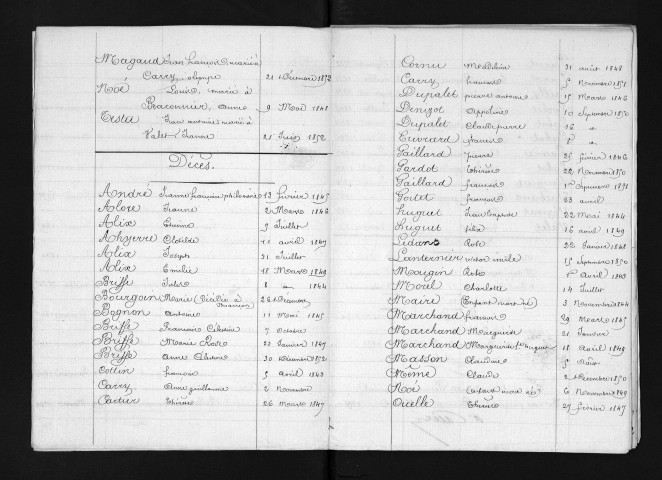 Magaud Jean françois marié à
Carry olympe 21 Décembre 1852
Noé Louis, marié à
Braconnier, Anne 9 Mai 1848
Testu Jean antoine marié à
Valet Jeanne 25 Juin 1852
Décès.
André Jeanne françoise philomène 13 février 1845
Alix Jeanne 2 Mars 1846
Alix Emma 9 Juillet
Clotilde 11 avril 1849
Alix Joseph 21 Juillet
Alix Emilie 18 Mars 1849
Briffe Jules 8 1844
Bourgoin Marie (Décédée à 26 Décembre
Bognon Antoine 11 Mai 1845
Briffe Francois Célestin 7 Octobre
Briffe Marie Rose 22 Janvier 1847
Briffe Anne 30 Décembre 1852
Collin francois 5 Avril 1843
Carry Anne guillaume 2 Novembre
Cartier Thérèse 26 Mars 1847
Cornu Madeleine 21 août 1848
Carry francois 5 Novembre 1851
Dupalet pierre antoine 15 Mars 1846
Denizot Appoline 10 Septembre 1850
Dupalet Claude pierre 16 "
Cuvrard francois 8 "
Gaillard pierre 25 février 1846
Gardot Thérèse 22 Novembre 1850
Gaillard francois 1 Septembre 1851
Goitet francois 23 avril
Huguet Jean baptiste 22 Mai 1844
Huguet félix 16 août 1849
Lidans Rose 22 Janvier 1848
Lanternier victor emile 15 Septembre 1850
Mougin Rose 1er Avril 1843
Morel Charlotte 14 Juillet
Maire (Enfant mort né) 3 Novembre 1844
Marchand francois 29 Mars 1845
Marchand Marguerite 21 Janvier
Marchand Marguerite 18 Avril 1849
Masson Claudine 5 Août
Même Claude 2 Décembre 1850
Noé (enfant mort né) 6 Novembre 1849
Ouelle Thérèse 27 février 1847